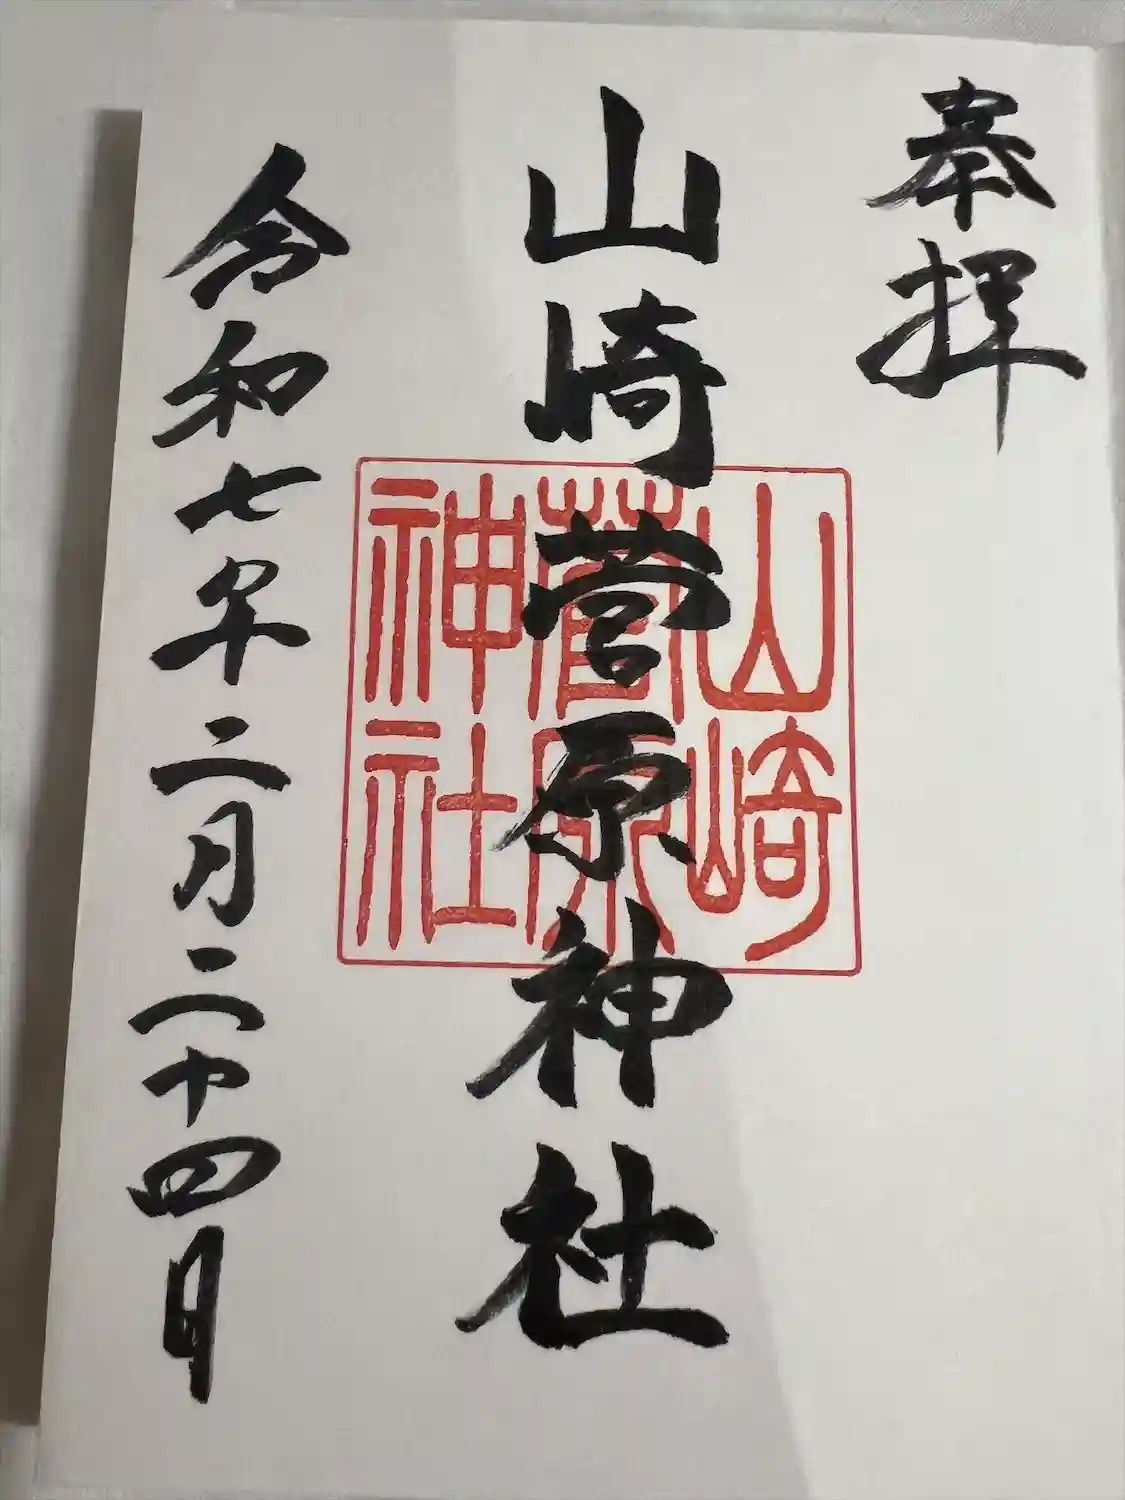 奉拝
山崎菅原神社
令和七年二月二十四日
山崎
菅原
神社